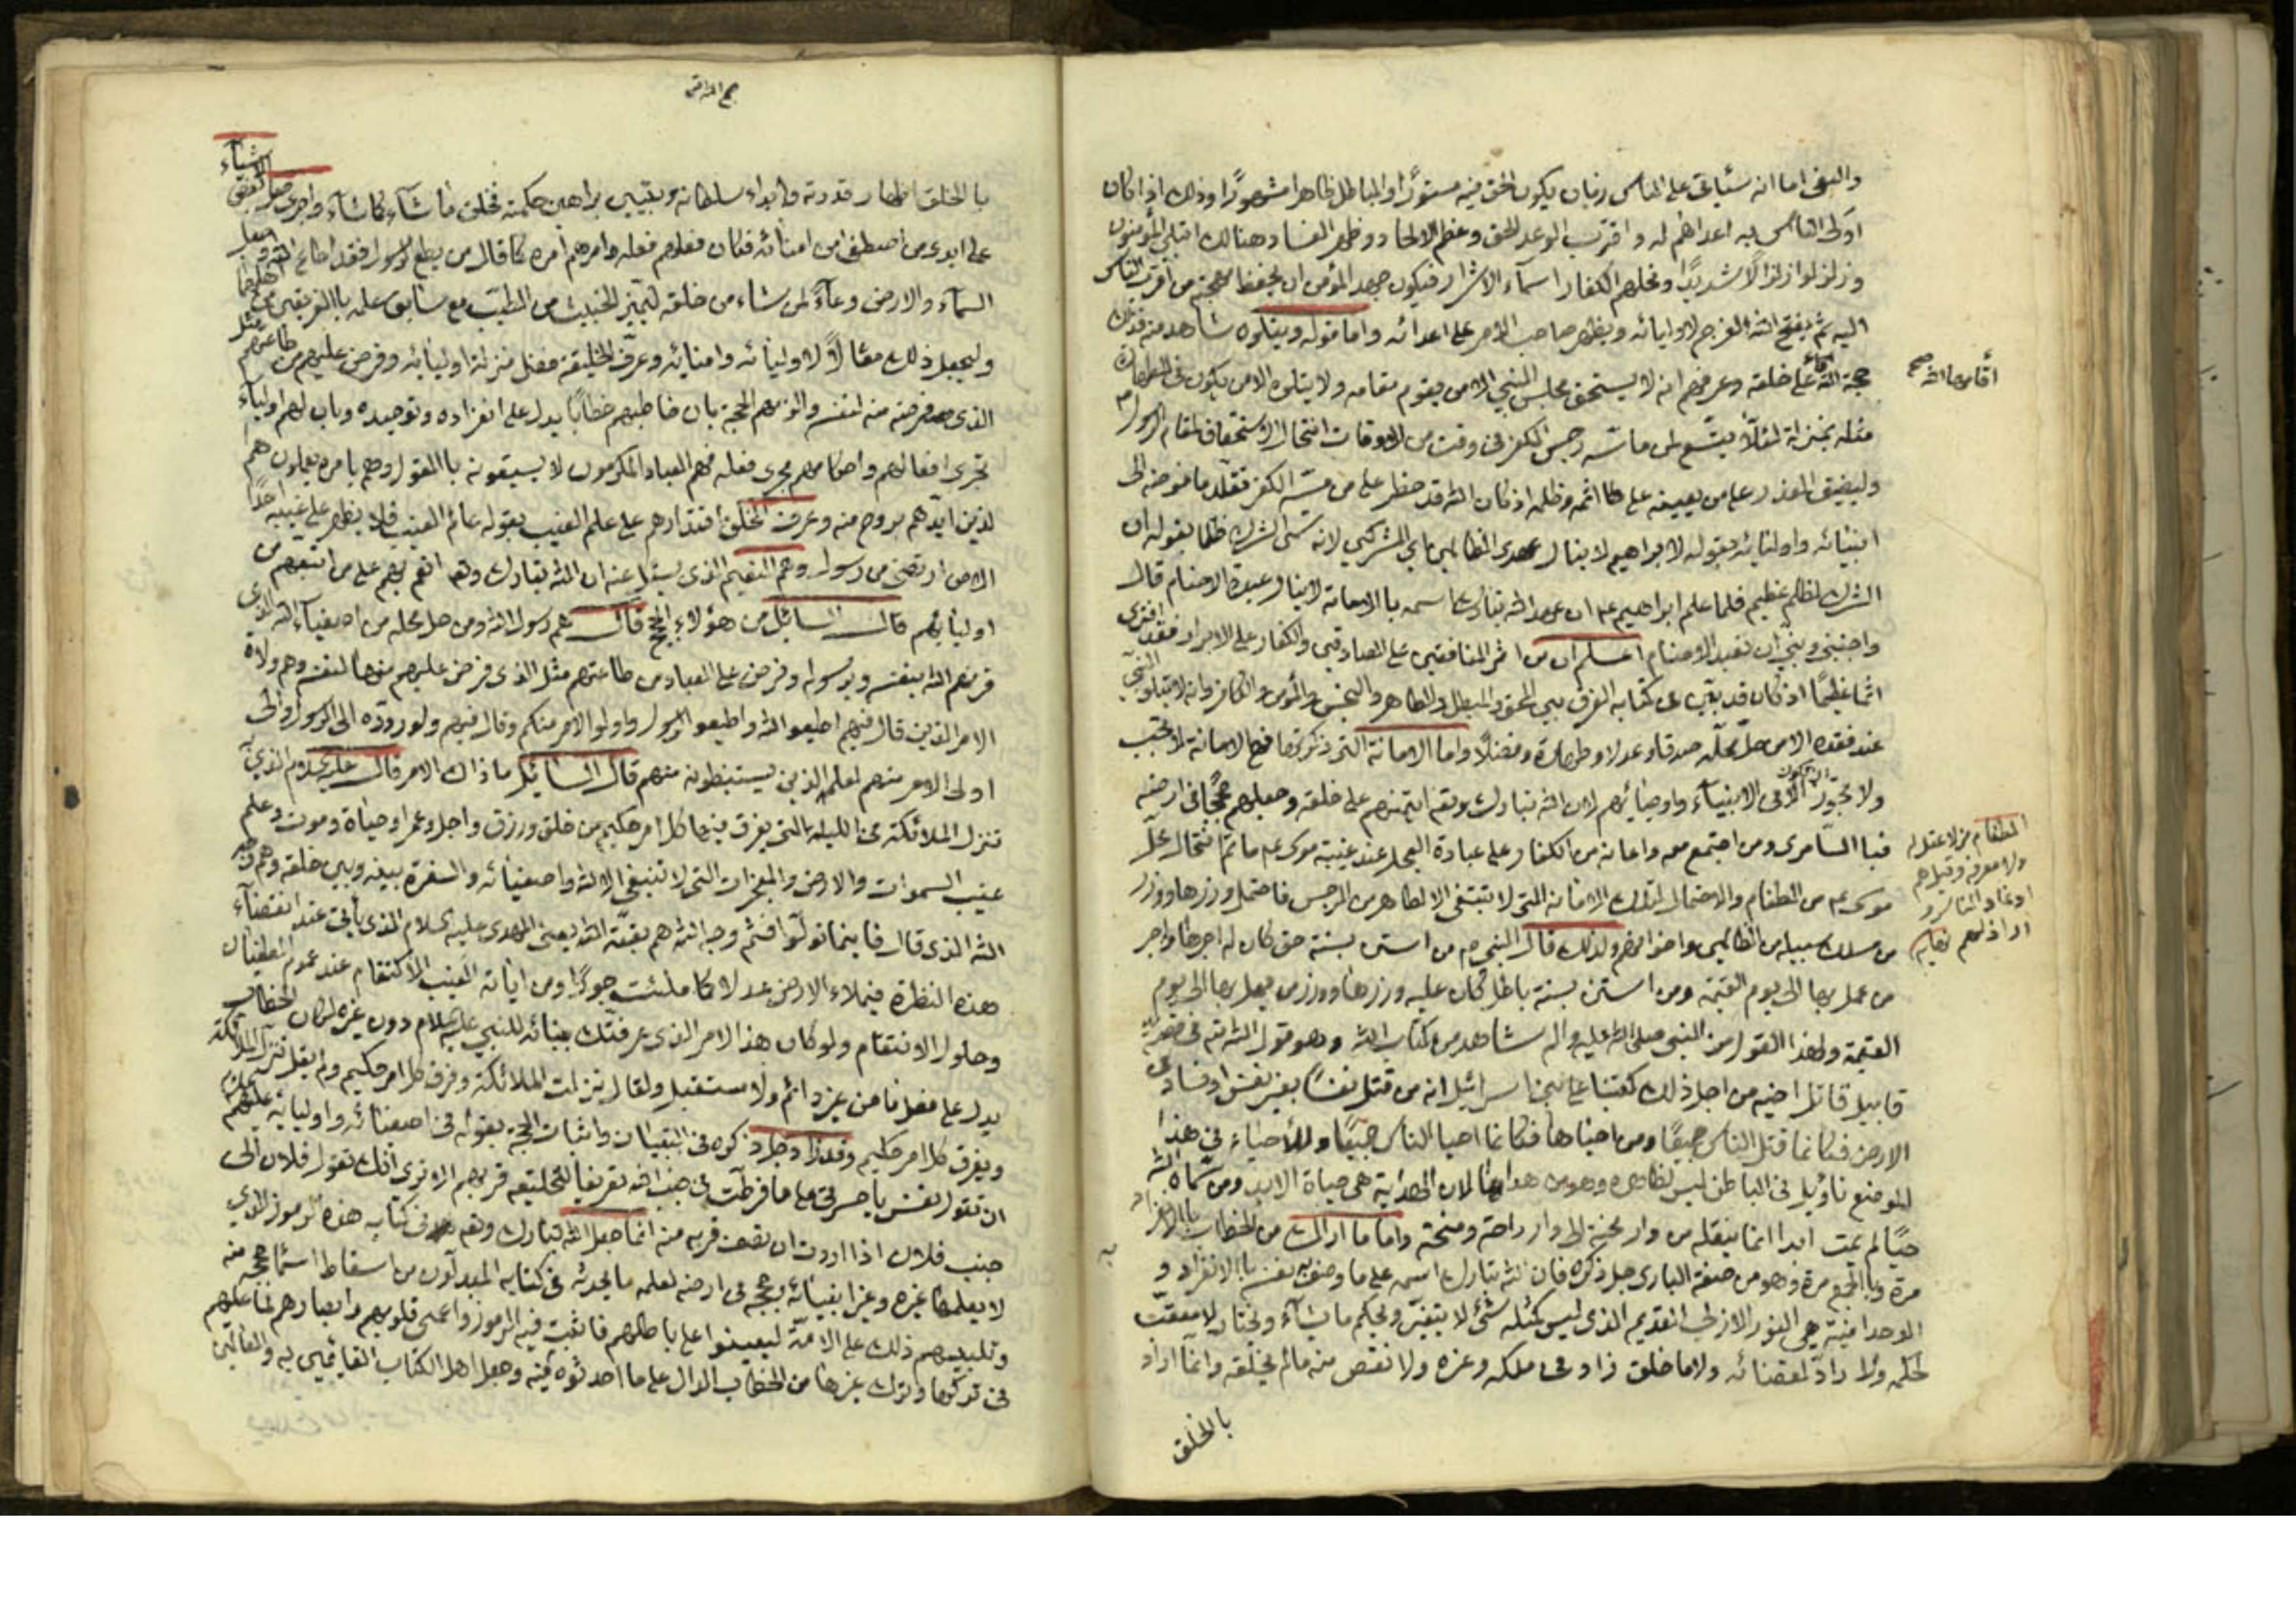 والبغي اما انه سيأتي على الناس زمان يكون الحق فيه مستورًا والباطل ظاهرا مشهورًا وذلك اذا كان
اولى الناس به اعداهم له واقترب الوعد الحق وعظم الالحاد وظهر الفساد هنالك ابتلي المؤمنون
وزلزلوا زلزالًا شديدًا ونحلهم الكفار اسماء الاشرار فيكون جهد المؤمن ان يحفظ مهجته من اقرب الناس
اليه ثم يفتح الله الفرج لاوليائه ويظهر صاحب الامر على اعدائه واما قوله ويتلوه شاهد منه فذلك
حجة الله اقامها الله على خلقه وعرفهم انه لا يستحق مجلس النبي الا من يقوم مقامه ولا يتلوه الا من يكون في الطهارة
مثله بمنزلة لئلا يتسع لمن ماسه رجس الكفر في وقت من الاوقات انتحال الاستحقاق لمقام الرسول
وليضيق العذر على من يعينه على اثمه وظلمه اذ كان الله قد حظر على من مسه الكفر تقلد ما فوضه الى
انبيائه واوليائه بقوله لابراهيم لا ينال عهدي الظالمين اي المشركين لانه سمى الشرك ظلما بقوله ان
الشرك لظلم عظيم فلما علم ابراهيم ان عهد الله تبارك اسمه بالامامة لا ينال عبدة الاصنام قال
واجنبني وبني ان نعبد الاصنام اعلم ان من اثر المنافقين على الصادقين والكفار على الابرار فقد افترى
اثما عظيما اذ كان قد بين في كتابه الفرق بين المحق والمبطل والطاهر والنجس والمؤمن والكافر وانه لا يتلو النبي
عند فقده الا من حل محله صدقا وعدلا وطهارة وفضلًا واما الامانة التي ذكرتها فهي الامانة لا تجب
ولا تجوز ان تكون الا في الانبياء واوصيائهم لان الله تبارك وتعالى ايتمنهم على خلقه وجعلهم حججًا في ارضه
فبالسامري ومن اجتمع معه واعانه من الكفار على عبادة العجل عند غيبة موسى ما تم انتحال محل
موسى من الطغام والاحتمال لتلك الامانة التي لا تنبغي الا لطاهر من الرجس فاحتمل وزرها ووزر
من سلك سبيله من الظالمين واعوانهم ولذلك قال النبي ص من استن سنة حق كان له اجرها واجر
من عمل بها الى يوم القيمة ومن استن سنة باطل كان عليه وزرها ووزر من عمل بها الى يوم
القيمة ولهذا القول من النبي صلى الله عليه واله شاهد من كتاب الله وهو قول الله في قصة
قابيل قاتل اخيه من اجل ذلك كتبنا على بني اسرائيل انه من قتل نفسًا بغير نفس او فساد في
الارض فكانما قتل الناس جميعًا ومن احياها فكانما احيا الناس جميعًا وللاحياء في هذا
الموضع تاويل في الباطن ليس كظاهره وهو من هداها لان الهداية هي حياة الابد ومن سماه الله
حيًا لم يمت ابدا انما ينقله من دار محنة الى دار راحة ومنحة واما ما اراك من الخطاب بالانفراد
مرة وبالجمع مرة وهو من صفة الباري جل ذكره فان الله تبارك اسمه على ما وصف به نفسه بالانفراد و
الوحدانية هي النور الازلي القديم الذي ليس كمثله شيء لا يتغير ويحكم ما يشاء ويختار لا معقب
لحكمه ولا راد لقضائه ولا ما خلق زاد في ملكه وعزه ولا نقص منه مالم يخلقه وانما اراد
بالخلق
اقامها الله صح
الطغام من لا عقل له
ولا معرفة وقيل هم
اوغاد الناس و
اراذلهم نهاية
بالخلق اظهار قدرته وابداء سلطانه وتبيين براهين حكمته فخلق ما شاء كما شاء واجرى فعل بعض الاشياء
على ايدي من اصطفى من امنائه فكان فعلهم فعله وامرهم امره كما قال من يطع الرسول فقد اطاع الله وجعل
السماء والارض وعاءً لمن شاء من خلقه ليميز الخبيث من الطيب مع سابق علمه بالفريقين من اهلهما
وليجعل ذلك مثالًا لاوليائه وامنائه وعرف الخليقة فضل منزلة اوليائه وفرض عليهم من طاعتهم مثل
الذي فرضه منه لنفسه والزمهم الحجة بان خاطبهم خطابًا يدل على انفراده وتوحيده وبان لهم اولياء
تجري افعالهم واحكامهم مجرى فعله فهم العباد المكرمون لا يسبقونه بالقول وهم بامره يعملون هم
الذين ايدهم بروح منه وعرف الخلق اقتدارهم على علم الغيب بقوله عالم الغيب فلا يظهر على غيبه احدًا
الا من ارتضى من رسول وهم النعيم الذي يسئل عنه ان الله تبارك وتعالى انعم بهم على من اتبعهم من
اوليائهم قال السائل من هؤلاء الحجج قال هم رسول الله ومن حل محله من اصفياء الله الذين
قرنهم الله بنفسه وبرسوله وفرض على العباد من طاعتهم مثل الذي فرض عليهم منها لنفسه وهم ولاة
الامر الذين قال فيهم اطيعوا الله واطيعوا الرسول واولوا الامر منكم وقال فيهم ولو ردوه الى الرسول والى
اولى الامر منهم لعلمه الذين يستنبطونه منهم قال السائل ما ذاك الامر قال عليه السلام الذي به
تنزل الملائكة في الليلة التي يفرق فيها كل امر حكيم من خلق ورزق واجل وعمر وحياة وموت وعلم
غيب السموات والارض والمعجزات التي لا تنبغي الا لله واصفيائه والسفرة بينه وبين خلقه وهم وجه
الله الذي قال فاينما تولوا فثم وجه الله هم بقية الله يعني المهدي عليه السلام الذي ياتي عند انقضاء
هذه النظرة فيملاء الارض عدلا كما ملئت جورًا ومن اياته الغيب الاكتتام عند عموم الطغيان
وحلول الانتقام ولو كان هذا الامر الذي عرفتك بيانه للنبي عليه السلام دون غيره لكان الخطاب
يدل على فعل ماض غير دائم ولا مستقبل ولقال نزلت الملائكة وفرق كل امر حكيم ولم يقل تنزل الملائكة
ويفرق كل امر حكيم وقد زاد جل ذكره في التبيان واثبات الحجة بقوله في اصفيائه واوليائه عليهم السلام
ان تقول نفس يا حسرتى على ما فرطت في جنب الله تعريفا للخليقة قربهم الا ترى انك تقول فلان الى
جنب فلان اذا اردت ان تصف قربه منه انما جعل الله تبارك وتعالى في كتابه هذه الرموز التي
لا يعلمها غيره وغير انبيائه وحججه في ارضه لعلمه ما يحدثه في كتابه المبدلون من اسقاط اسماء حججه منه
وتلبيسهم ذلك على الامة ليعينوا على باطلهم فاثبت فيه الرموز واعمى قلوبهم وابصارهم لما عليهم
في تركها وترك غيرها من الخطاب الدال على ما احدثوه فيه وجعل اهل الكتاب القائمين به والعالمين